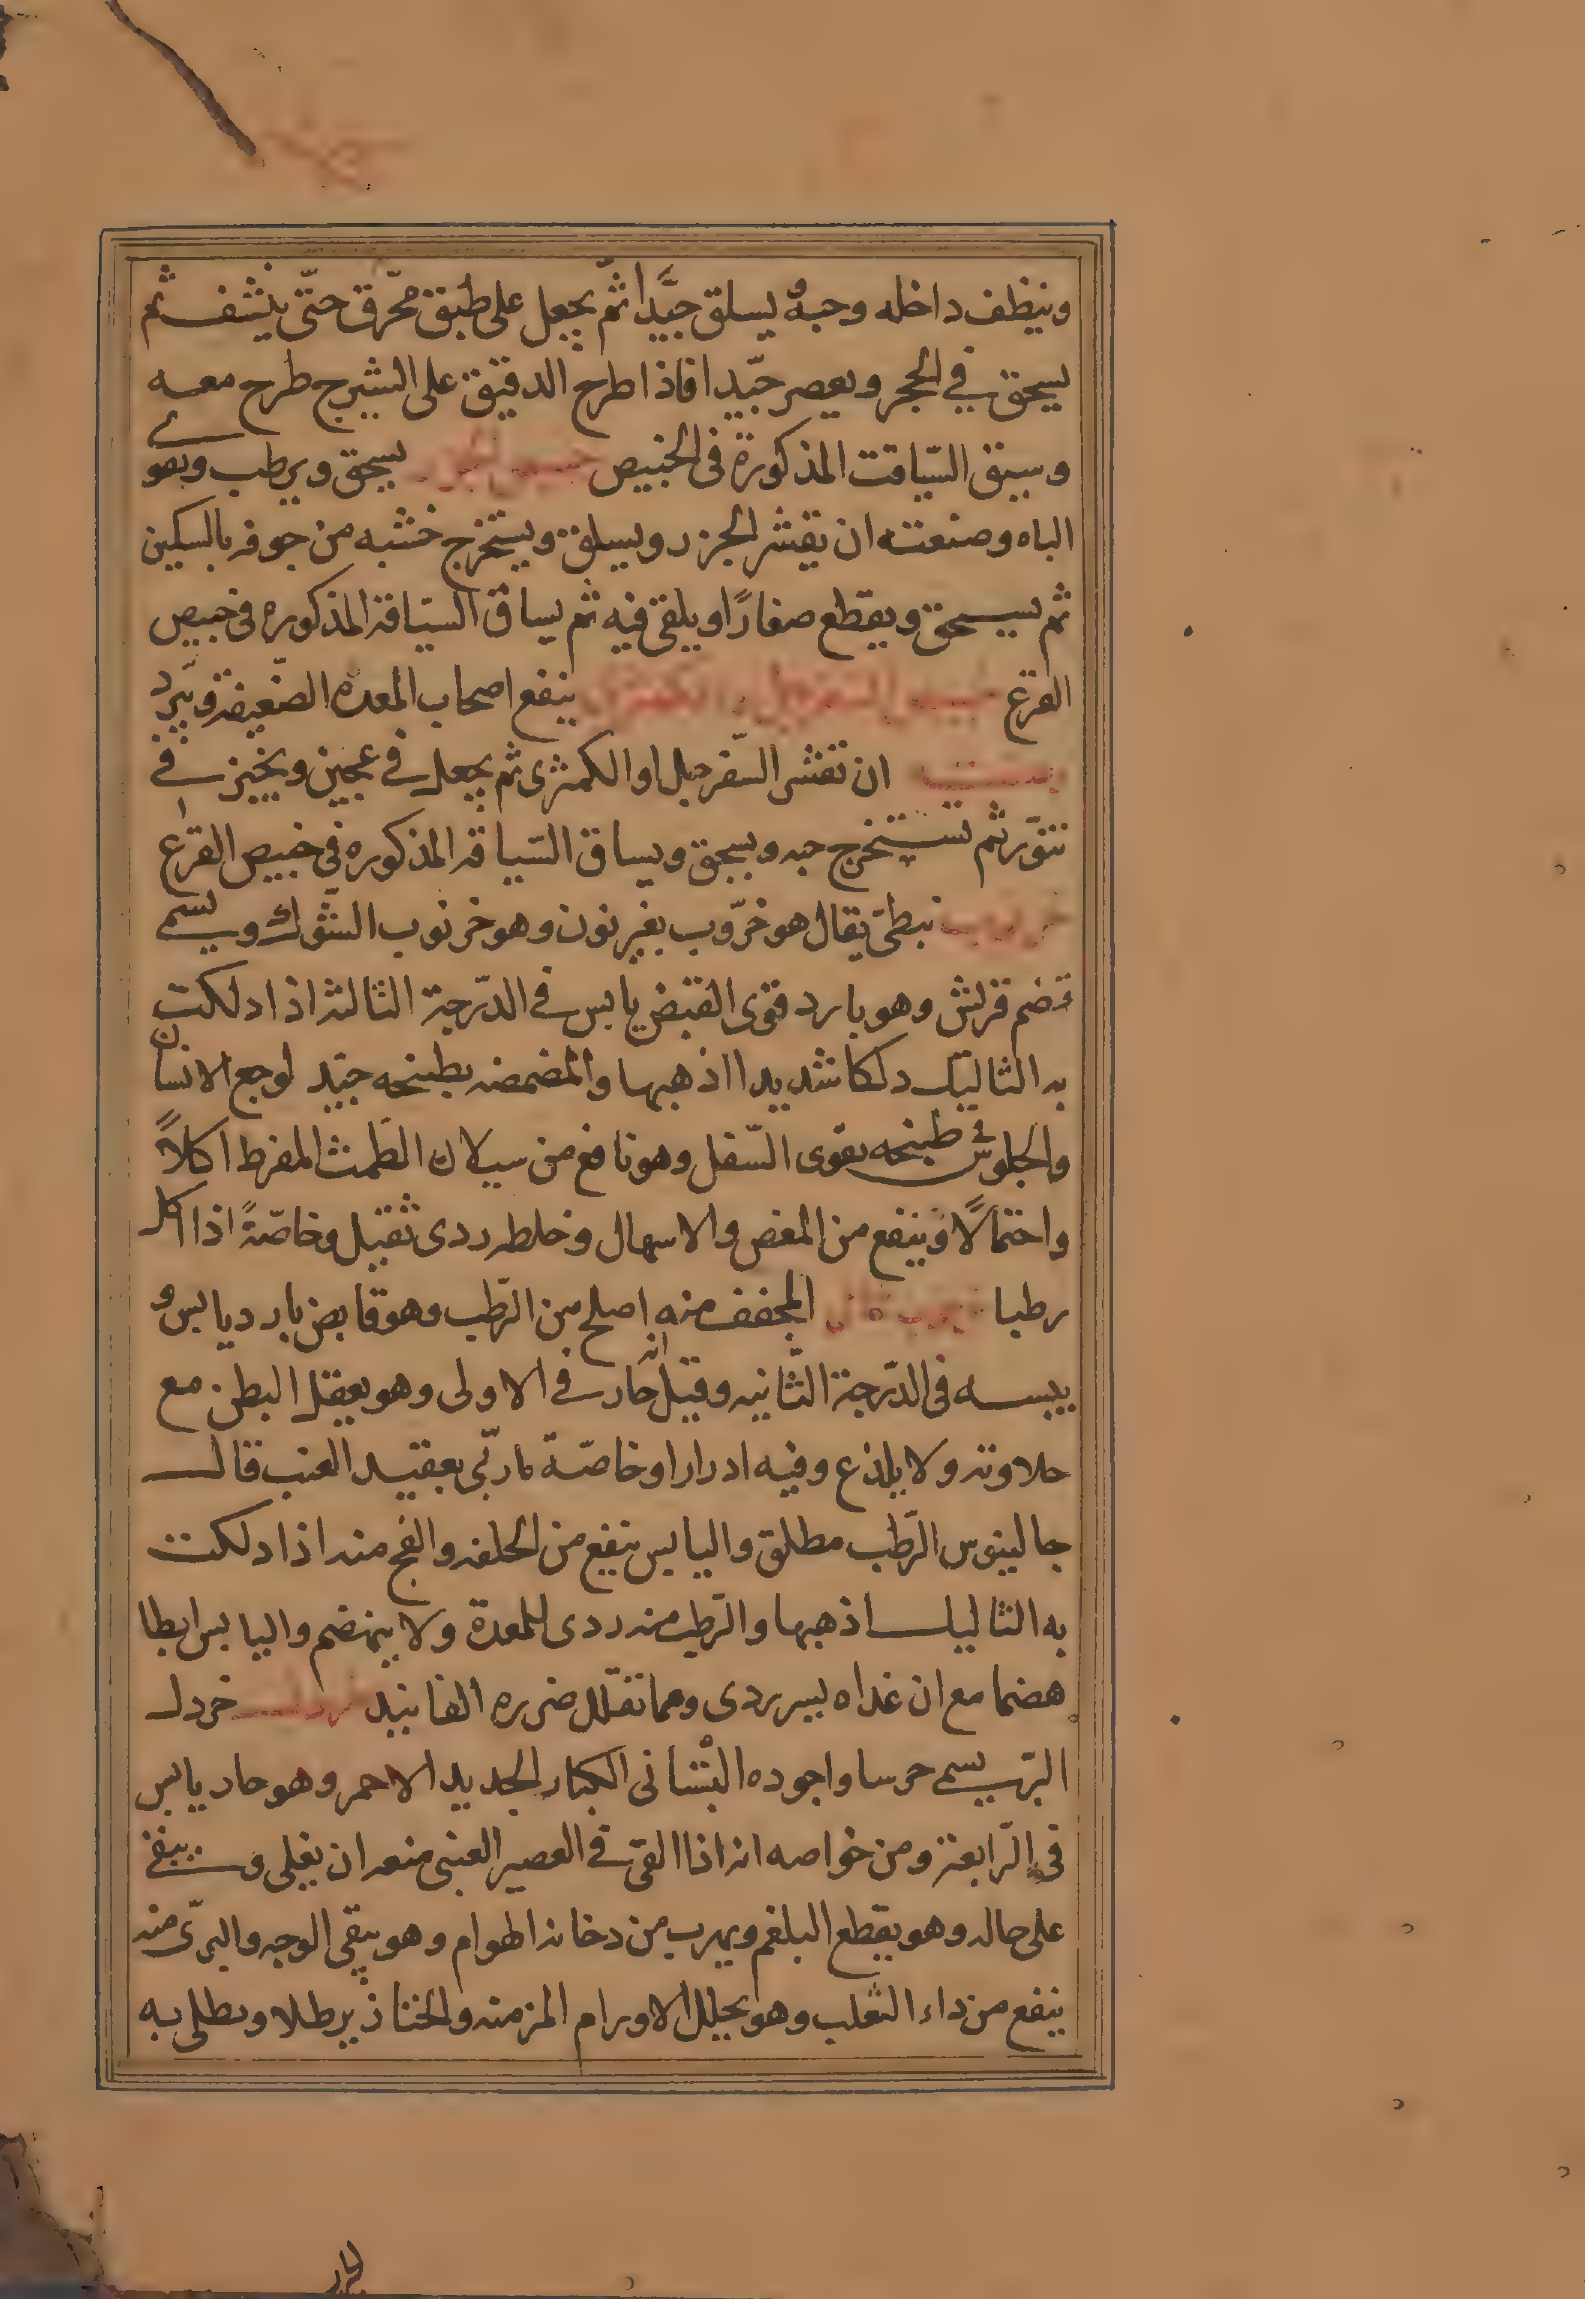 وينظف داخله وحبهُ يسلق جيَّدا ثمّ يجعل على طبق محّرق حتّى ينشف ثم
يسحق في الحجر ويعصر جيّدا فاذا طرح الدقيق على الشيرج طرح معه
وسيق السّياقت المذكورة فى الخبيص خبيص الجزر يسحق ويرطب ويقوى
الباه وصنعته ان يقشر الجزر ويسلق ويستخرج خشبه من جوفه بالسكين
ثم يسحق ويقطع صغارًا ويلقى فيه ثم يساق السّياقة المذكوره فى خبيص
القرع خبيص السفرجل والكمثرى ينفع اصحاب المعده الضّعيفة ويبرّد
وصنعته ان تقشر السّفرجل او الكمثرى ثم يجعل فى عجين ويخبز في
تنوّر ثم تستخرج حبه ويسحق ويساق السّياقه المذكوره فى خبيص القرع
خرنوب نبطىّ يقال هو خرّوب بغير نون وهو خرنوب الشّوك ويسمى
قضم قريش وهو بارد قوى القبض يابس فى الدّرجة الثالثه اذا دلكت
به الثاليّل دلكا شديدا اذهبها والمضمضه بطبيخه جيّد لوجع الاسنان
والجلوس فى طبيخه يقوى السّفل وهو نافع من سيلان الطَمث المفرط اكلاً
واحتمالاً وينفع من المغص والاسهال وخلطه ردى ثقيل وخاصّةً اذا اكل
رطبا خرنوب شامى المجفف منه اصلح من الرّطب وهو قابض بارد يابس و
يبسه فى الدّرجة الثّانيه وقيل انه حار فى الاولى وهو يعقل البطن مع
حلاوته ولا يلذع وفيه ادرارا وخاصّة ماربّى بعقيد العنب قال
جالينوس الرّطب مطلق واليابس ينفع من الخلفه والفج منه اذا دلكت
به الثاليل اذهبها والرّطب منه ردى للمعدة ولا ينهضم واليابس ابطا
هضما مع ان غذاه يسير ردى ومما تقلّل ضرره الفانيد خردل خردل
البرّ يسمى حرسا واجوده البُستانى الكبار الجديد الاحمر وهو حار يابس
فى الرّابعة ومن خواصه انه اذا القى فى العصير العنبى منعه ان يغلى ويبقى
على حاله وهو يقطع البلغم ويهرب من دخانه الهوام وهو ينقى الوجه والبرّى منه
ينفع من داء الثعلب وهو يحلل الاورام المزمنه والخنازير طلا ويطلى به